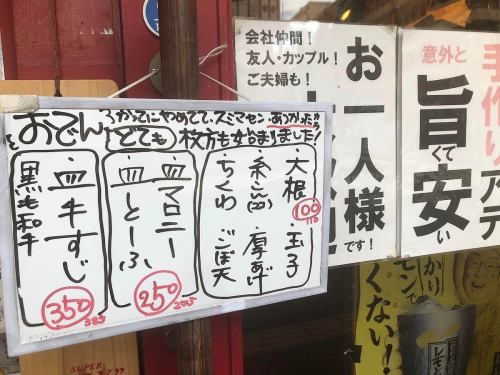 かってにやめてて、スミマセン
おでん
とても
枚方も始まりました!
大根 玉子
100
110
糸こん 厚あげ
ちくわ ごぼ天
皿マロニー
皿とーふ
250
275
皿牛すじ
黒毛和牛
350
385
会社仲間!
友人・カップル!
ご夫婦も!
お一人様
です!
意外と
旨くて
安い
手作り
くない!
レモン
SUPER